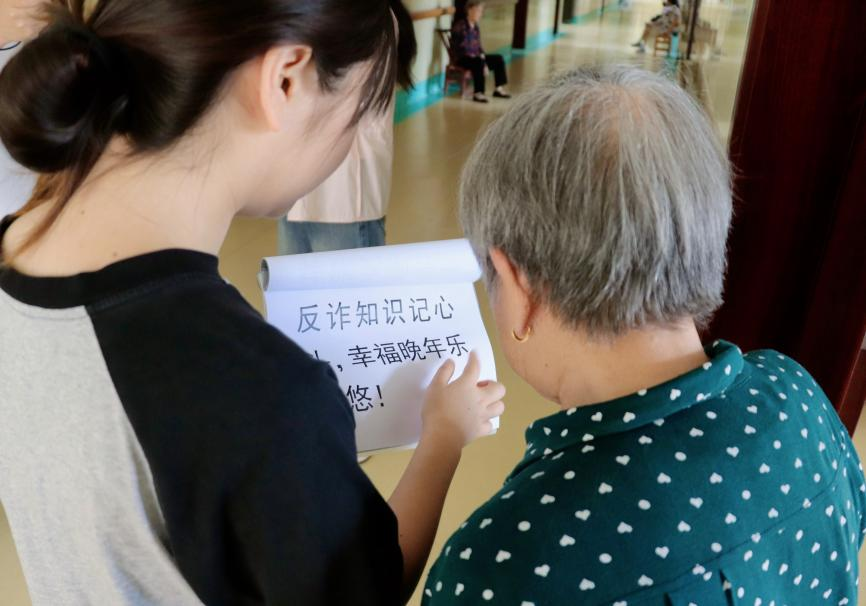 反诈知识记心
，幸福晚年乐
悠！